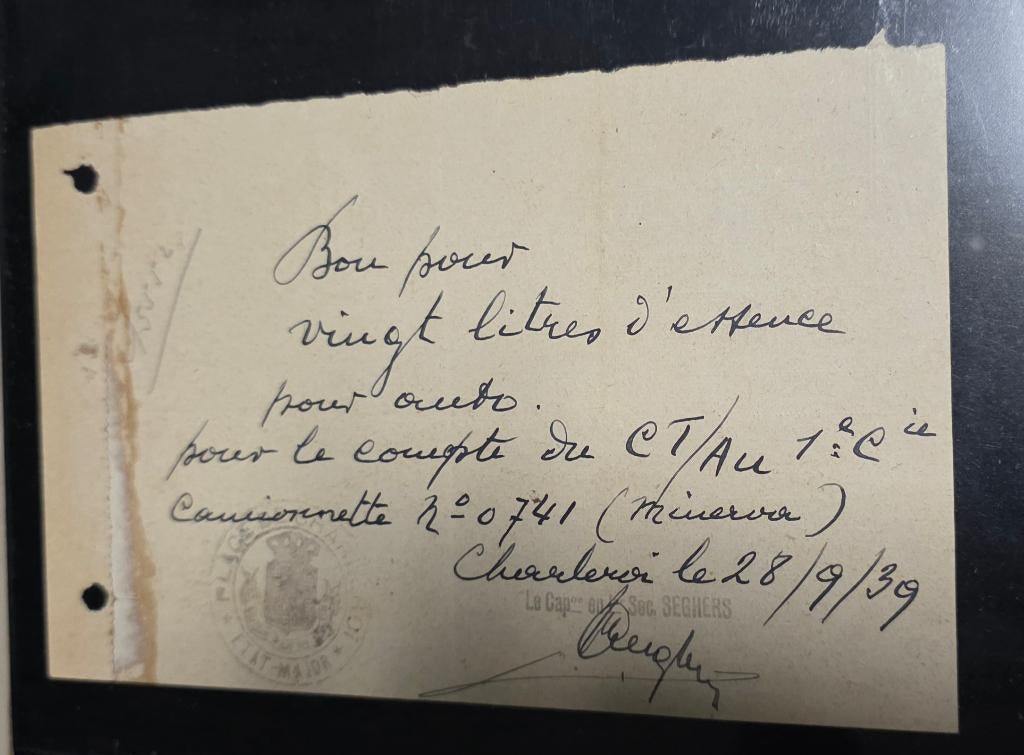 Bon pour
vingt litres d'essence
pour auto.
pour le compte du CT/Au 1e Cie
Camionnette No 0741 (Minerva)
Charleroi le 28/9/39
Le Capne en Sec. SEGHERS
ETAT-MAJOR